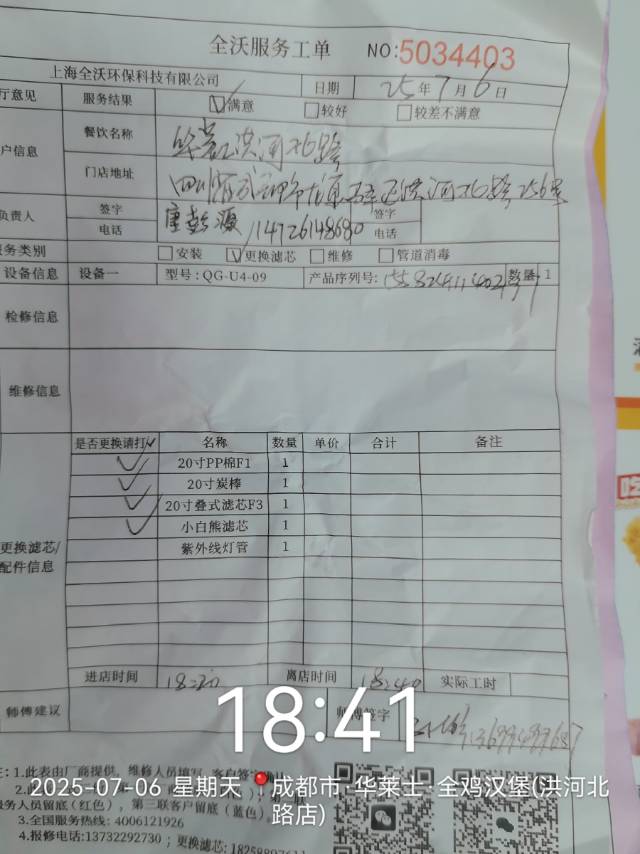 全沃服务工单 NO:5034403
上海全沃环保科技有限公司 日期 25年7月6日
厅意见 服务结果 满意 较好 较差不满意
户信息 餐饮名称 洪河北路
门店地址 四川省成都市龙泉 洪河北路
负责人 签字 唐彭源 签字
电话 14726148680 电话
服务类别 安装 更换滤芯 维修 管道消毒
设备信息 设备一 型号:QG-U4-09 产品序列号: 数量 1
检修信息
维修信息
是否更换请打✓ 名称 数量 单价 合计 备注
✓ 20寸PP棉F1 1
✓ 20寸炭棒 1
✓ 20寸叠式滤芯F3 1
✓ 小白熊滤芯 1
紫外线灯管 1
更换滤芯/
配件信息
进店时间 18:20 离店时间 18:40 实际工时
师傅建议 师傅签字
18:41
注:1.此表由厂商提供,维修人员填写,客户签字确
2025-07-06 星期天 成都市·华莱士·全鸡汉堡(洪河北路店)
服务人员留底(红色),第三联客户留底(蓝色)
3.全国服务热线:4006121926
4.报修电话:13732292730;更换滤芯: